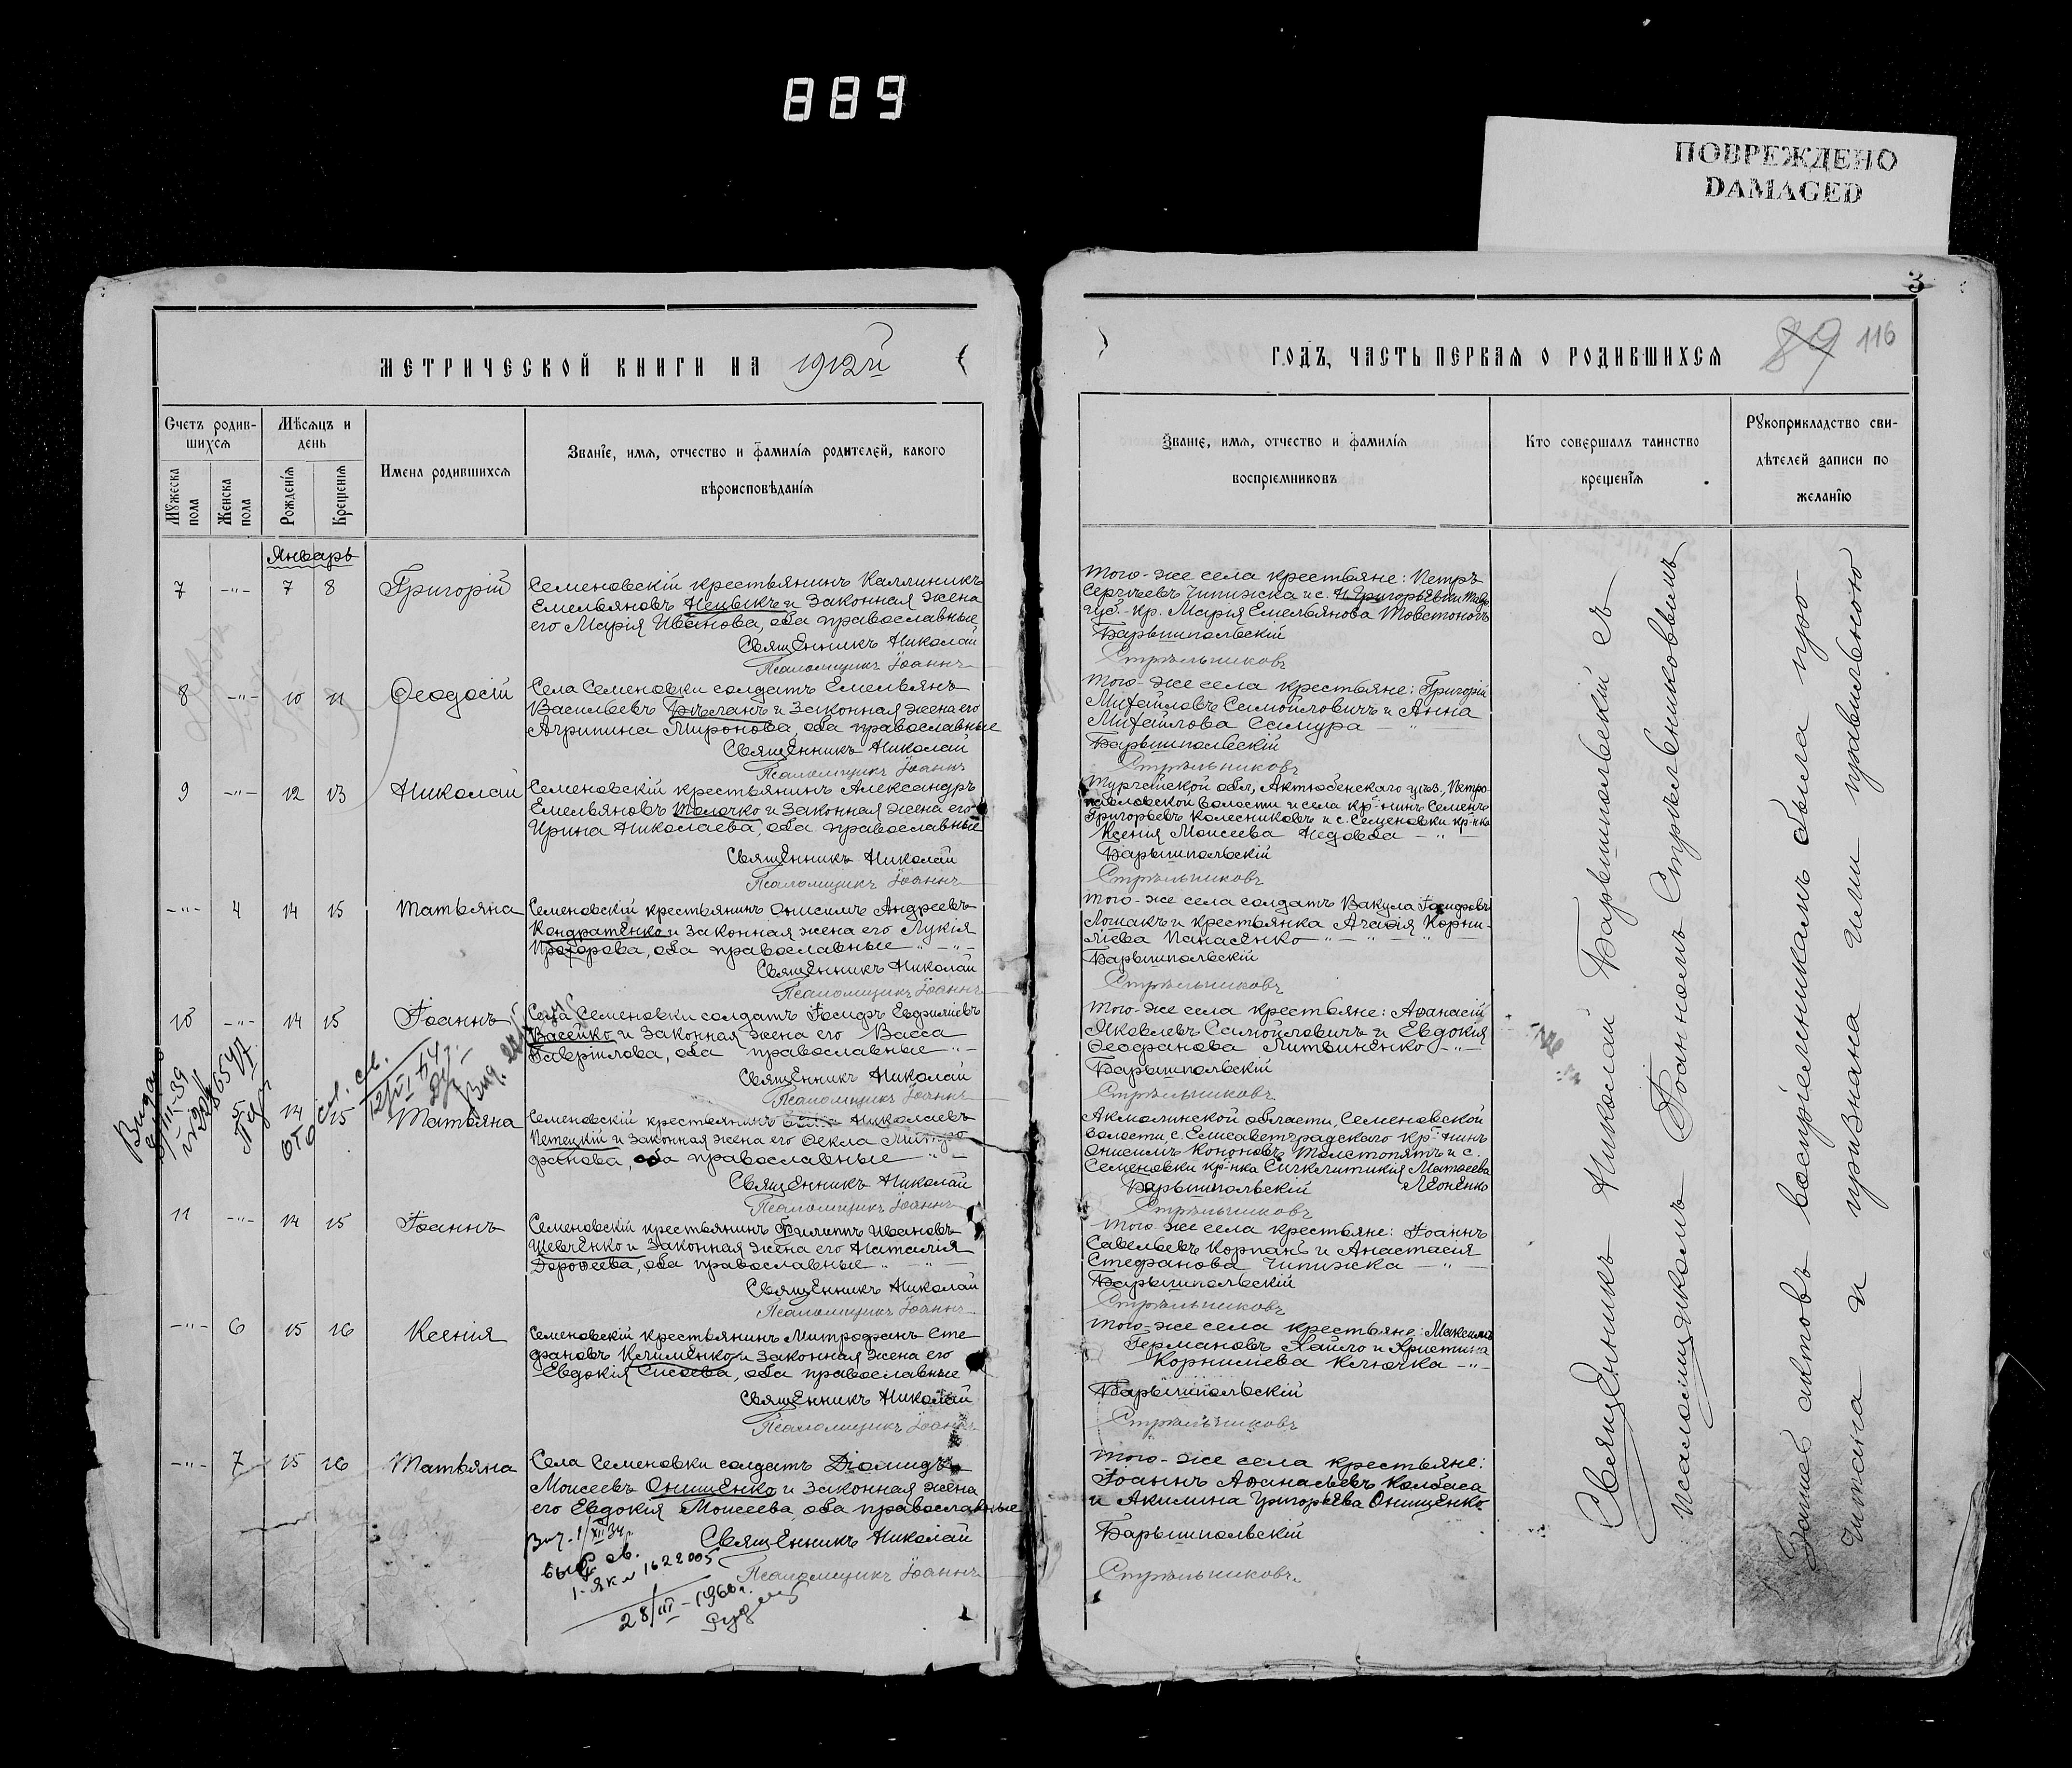 889
ПОВРЕЖДЕНО
DAMAGED
3
МЕТРИЧЕСКОЙ КНИГИ НА 1912й
Счетъ родив-
шихся
Мѣсяцъ и
день
Мужеска
пола
Женска
пола
Рожденія
Крещенія
Имена родившихся
Званіе, имя, отчество и фамилія родителей, какого
вѣроисповѣданія
Январь
7 -"- 7 8 Григорій
Семеновскій крестьянинъ Каллиникъ
Емельяновъ Нецвѣкъ и законная жена
его Марія Иванова, оба православные
Священникъ Николай
Псаломщикъ Іоаннъ
8 -"- 10 11 Ѳеодосій
Села Семеновки солдатъ Емельянъ
Васильевъ и законная жена его
Агрипина Миронова, оба православные
Священникъ Николай
Псаломщикъ Іоаннъ
9 -"- 12 13 Николай
Семеновскій крестьянинъ Александръ
Емельяновъ Толочко и законная жена его
Ирина Николаева, оба православные
Священникъ Николай
Псаломщикъ Іоаннъ
-"- 4 14 15 Татьяна
Семеновскій крестьянинъ Онисимъ Андреевъ
Кондратенко и законная жена его Лукія
Прохорова, оба православные -"-
Священникъ Николай
Псаломщикъ Іоаннъ
10 -"- 14 15 Іоаннъ
Села Семеновки солдатъ Іосифъ Евфиміевъ
Васейко и законная жена его Васса
Гавріилова, оба православные -"-
Священникъ Николай
Псаломщикъ Іоаннъ
-"- 5 14 15 Татьяна
Семеновскій крестьянинъ Николаевъ
Петецкій и законная жена его Ѳекла Митро
фанова, оба православные -"-
Священникъ Николай
Псаломщикъ Іоаннъ
11 -"- 14 15 Іоаннъ
Семеновскій крестьянинъ Филиппъ Ивановъ
Шевченко и законная жена его Наталія
Дороѳеева, оба православные -"-
Священникъ Николай
Псаломщикъ Іоаннъ
-"- 6 15 16 Ксенія
Семеновскій крестьянинъ Митрофанъ Сте
фановъ Клименко и законная жена его
Евдокія Сисоева, оба православные
Священникъ Николай
Псаломщикъ Іоаннъ
-"- 7 15 16 Татьяна
Села Семеновки солдатъ Діомидъ
Моисеевъ Онищенко и законная жена
его Евдокія Моисеева, оба православные
Священникъ Николай
Псаломщикъ Іоаннъ
1622005
28/III-1960г.
ГОДЪ, ЧАСТЬ ПЕРВАЯ О РОДИВШИХСЯ
89 116
Званіе, имя, отчество и фамилія
воспріемниковъ
Кто совершалъ таинство
крещенія
Рукоприкладство сви-
дѣтелей записи по
желанію
Того-же села крестьяне: Петръ
Сергѣевъ Чипижка и с. Н. Григорьевки Тавр.
губ. кр. Марія Емельянова Товстоногъ
Барышпольскій
Стрѣльниковъ
Того-же села крестьяне: Григорій
Михайловъ Самойловичъ и Анна
Михайлова Самура -"-
Барышпольскій
Стрѣльниковъ
Тургайской обл., Актюбенскаго уѣз., Петро
павловской волости и села кр-нинъ Семенъ
Григорьевъ Колесниковъ и с. Семеновки кр-нка
Ксенія Моисеева Недовба -"-
Барышпольскій
Стрѣльниковъ
Того-же села солдатъ Вакула Іосифовъ
Лошакъ и крестьянка Агафія Корни-
ліева Панасенко -"-
Барышпольскій
Стрѣльниковъ
Того-же села крестьяне: Аѳанасій
Яковлевъ Самойловичъ и Евдокія
Ѳеофанова Литвиненко -"-
Барышпольскій
Стрѣльниковъ
Акмолинской области, Семеновской
волости, с. Елисаветградскаго кр-нинъ
Онисимъ Кононовъ Толстопятъ и с.
Семеновки кр-нка Матѳеева
Леоненко
Барышпольскій
Стрѣльниковъ
Того-же села крестьяне: Іоаннъ
Савельевъ Корпань и Анастасія
Стефанова Чипижка -"-
Барышпольскій
Стрѣльниковъ
Того-же села крестьяне: Максимъ
Германовъ Хайло и Христина
Корниліева Ключка -"-
Барышпольскій
Стрѣльниковъ
Того-же села крестьяне:
Іоаннъ Аѳанасьевъ Колбаса
и Акилина Григорьева Онищенко
Барышпольскій
Стрѣльниковъ
Священникъ Николай Барышпольскій съ
псаломщикомъ Іоанномъ Стрѣльниковымъ
Запись актовъ воспріемникамъ была про
читана и признана ими правильною